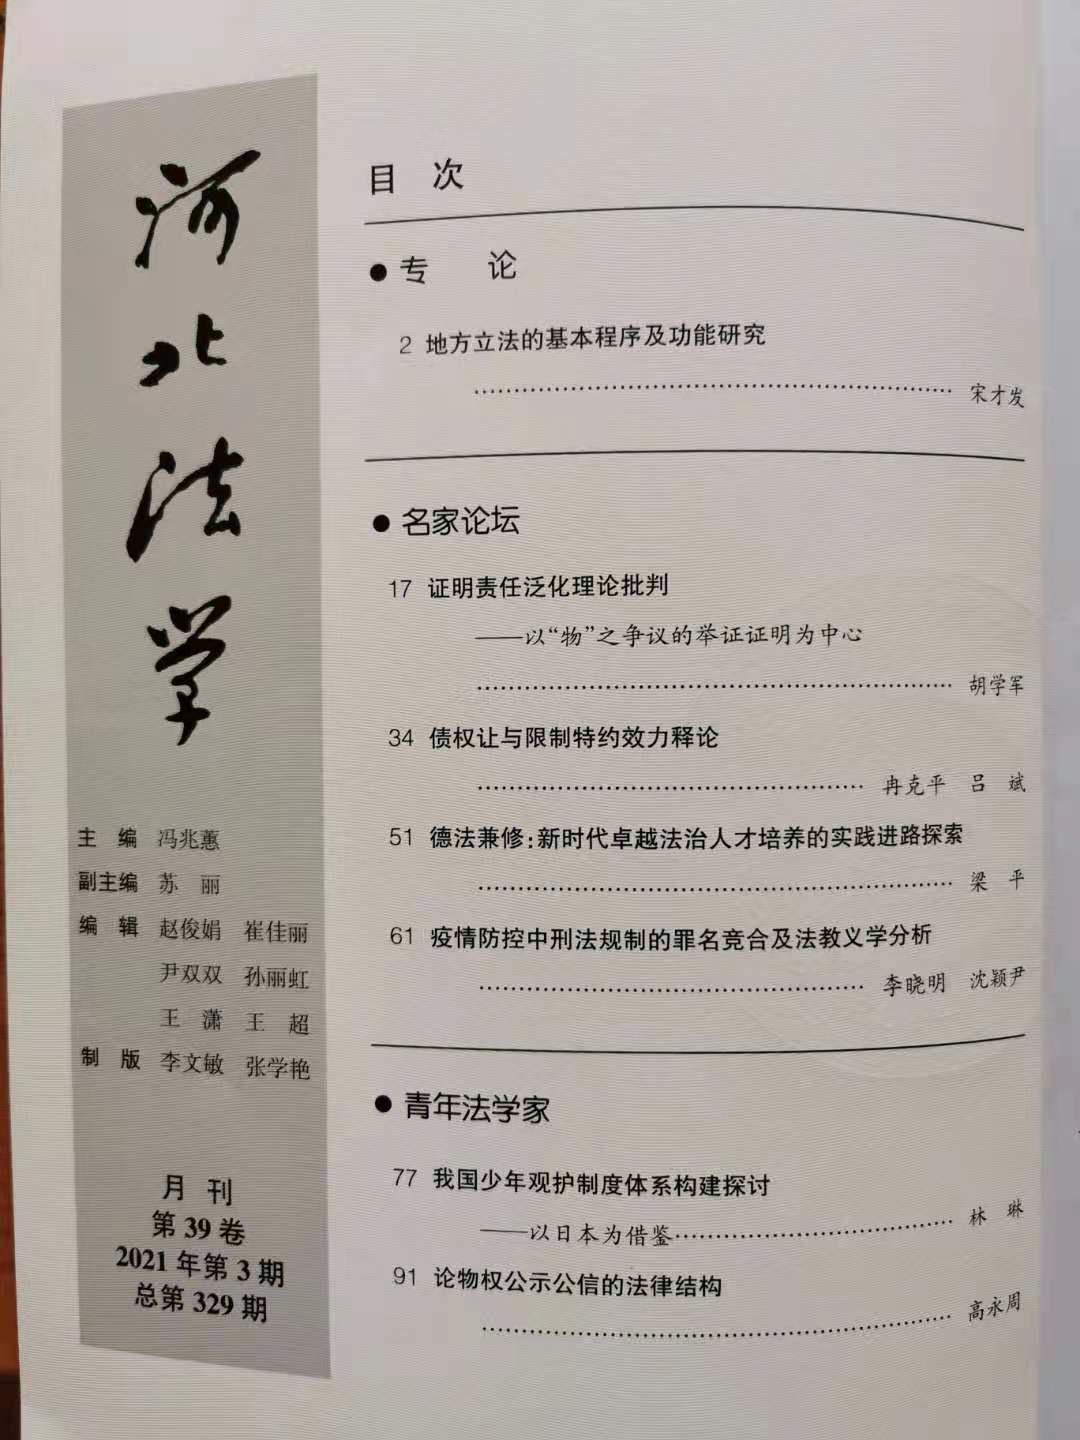 河北法学
主 编 冯兆蕙
副主编 苏 丽
编 辑 赵俊娟 崔佳丽
尹双双 孙丽虹
王 潇 王 超
制 版 李文敏 张学艳
月 刊
第 39 卷
2021 年第 3 期
总第 329 期
目 次
● 专 论
2 地方立法的基本程序及功能研究
宋才发
● 名家论坛
17 证明责任泛化理论批判
——以“物”之争议的举证证明为中心
胡学军
34 债权让与限制特约效力释论
冉克平 吕 斌
51 德法兼修:新时代卓越法治人才培养的实践进路探索
梁 平
61 疫情防控中刑法规制的罪名竞合及法教义学分析
李晓明 沈颖尹
● 青年法学家
77 我国少年观护制度体系构建探讨
——以日本为借鉴 林 琳
91 论物权公示公信的法律结构
高永周